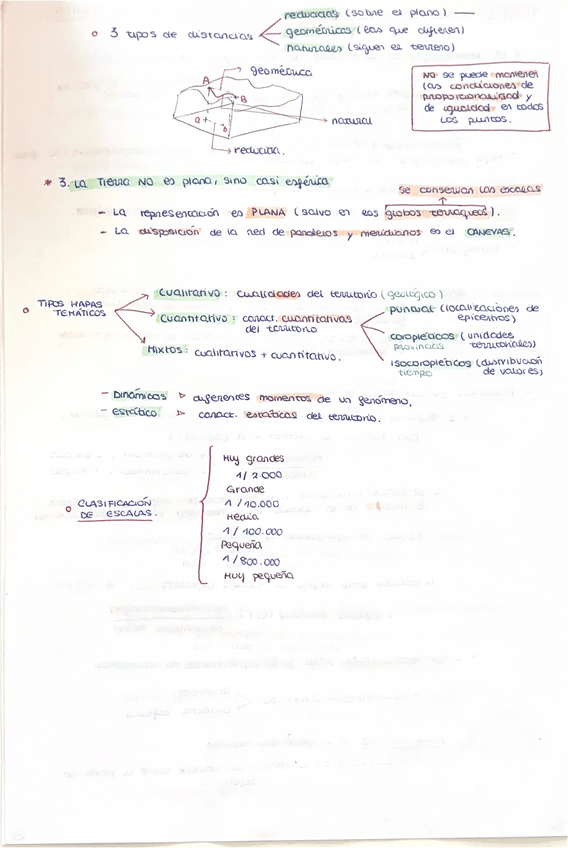 reducidas (sobre el plano) —
o 3 tipos de distancias
geométricas (las que difieren)
naturales (siguen el terreno)
geométrica
A
B
a
b
natural
reducida.
NO se puede mantener
las condiciones de
proporcionalidad y
de igualdad en todos
los puntos.
* 3. LA TIERRA NO es plana, sino casi esférica
se conservan las escalas
- La representación es PLANA (salvo en los globos terráqueos).
- La disposición de la red de paralelos y meridianos es el CANEVAS.
o TIPOS MAPAS
TEMÁTICOS
Cualitativo: cualidades del territorio (geológico)
Cuantitativo: caract. cuantitativas
del territorio
Mixtos: cualitativos + cuantitativo.
puntual (localizaciones de
epicentros)
coropléticos (unidades
provincias territoriales)
isocoropléticos (distribución
tiempo de valores)
- Dinámicos ▷ diferentes momentos de un fenómeno.
- estático ▷ caract. estáticas del territorio.
o CLASIFICACIÓN
DE ESCALAS.
Muy grandes
1/2.000
Grande
1/10.000
Media
1/100.000
Pequeña
1/800.000
Muy pequeña